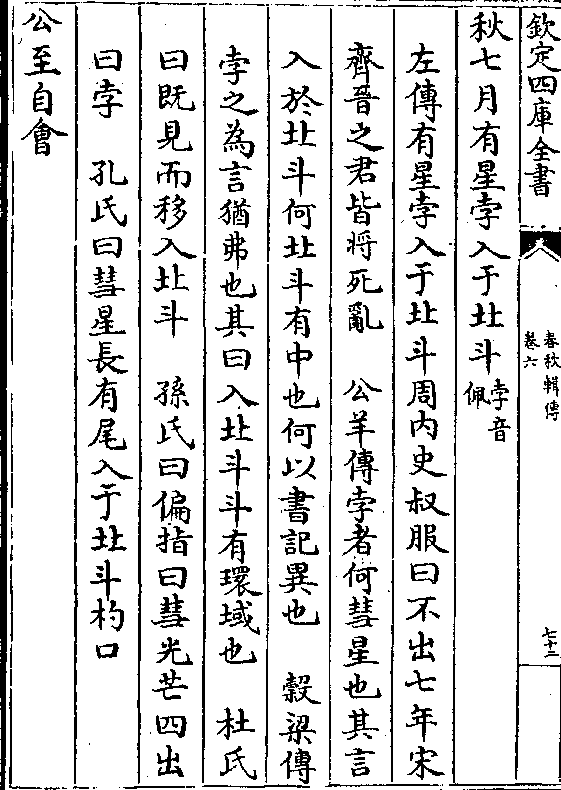 欽定四庫全書
春秋輯傳
卷六
七十三
秋七月有星孛入于北斗孛音佩
左傳有星孛入于北斗周内史叔服曰不出七年宋
齊晉之君皆將死亂　公羊傳孛者何彗星也其言
入於北斗何北斗有中也何以書記異也　榖梁傳
孛之為言猶弗也其曰入北斗斗有環域也　杜氏
曰既見而移入北斗　孫氏曰偏指曰彗光芒四出
曰孛　孔氏曰彗星長有尾入于北斗杓口
公至自會